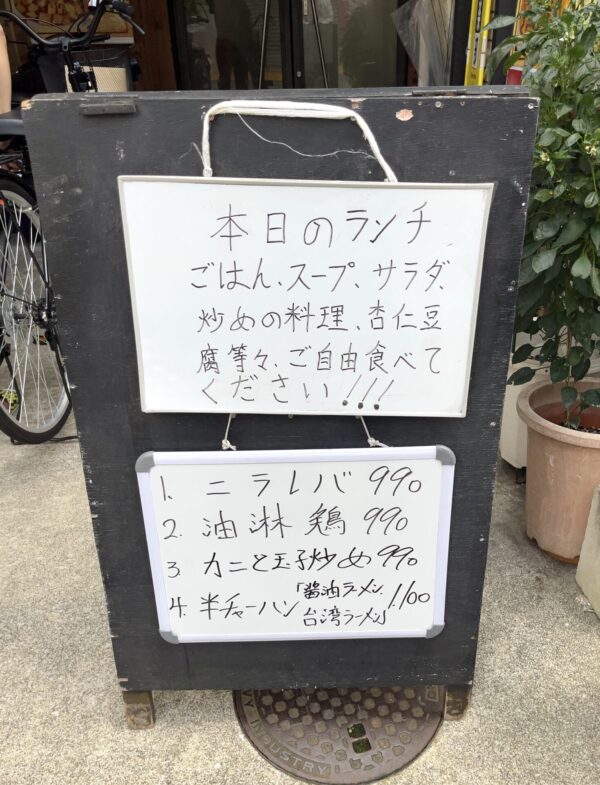 本日のランチ
ごはん、スープ、サラダ、
炒めの料理、杏仁豆
腐等々、ご自由食べて
ください!!!
1. ニラレバ 990
2. 油淋鶏 990
3. カニと玉子炒め 990
4. 半チャーハン「醤油ラーメン、 1.100
台湾ラーメン」
INDUSTRY